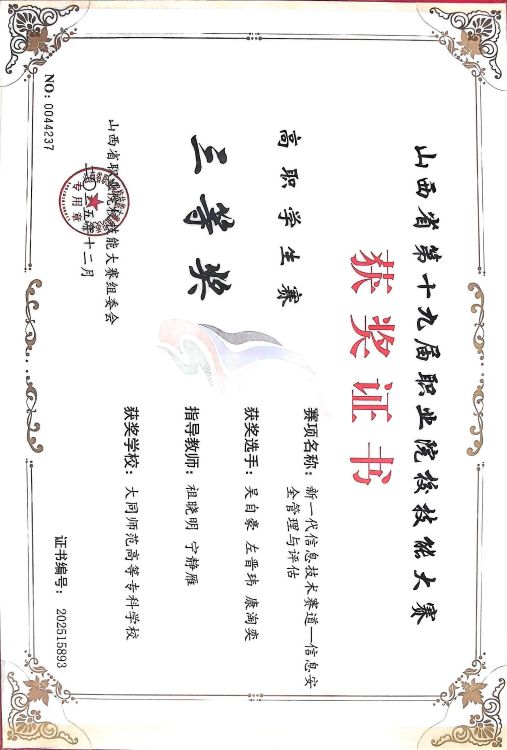 山西省第十九届职业院校技能大赛
获奖证书
高职学生赛
三等奖
赛项名称：新一代信息技术赛道—信息安
全管理与评估
获奖选手：吴自豪 左晋玮 康洵奕
指导教师：祖晓明 宁静雁
获奖学校：大同师范高等专科学校
山西省职业院校技能大赛组委会
二〇二五年十二月
专用章
NO：0044237
证书编号：202515893